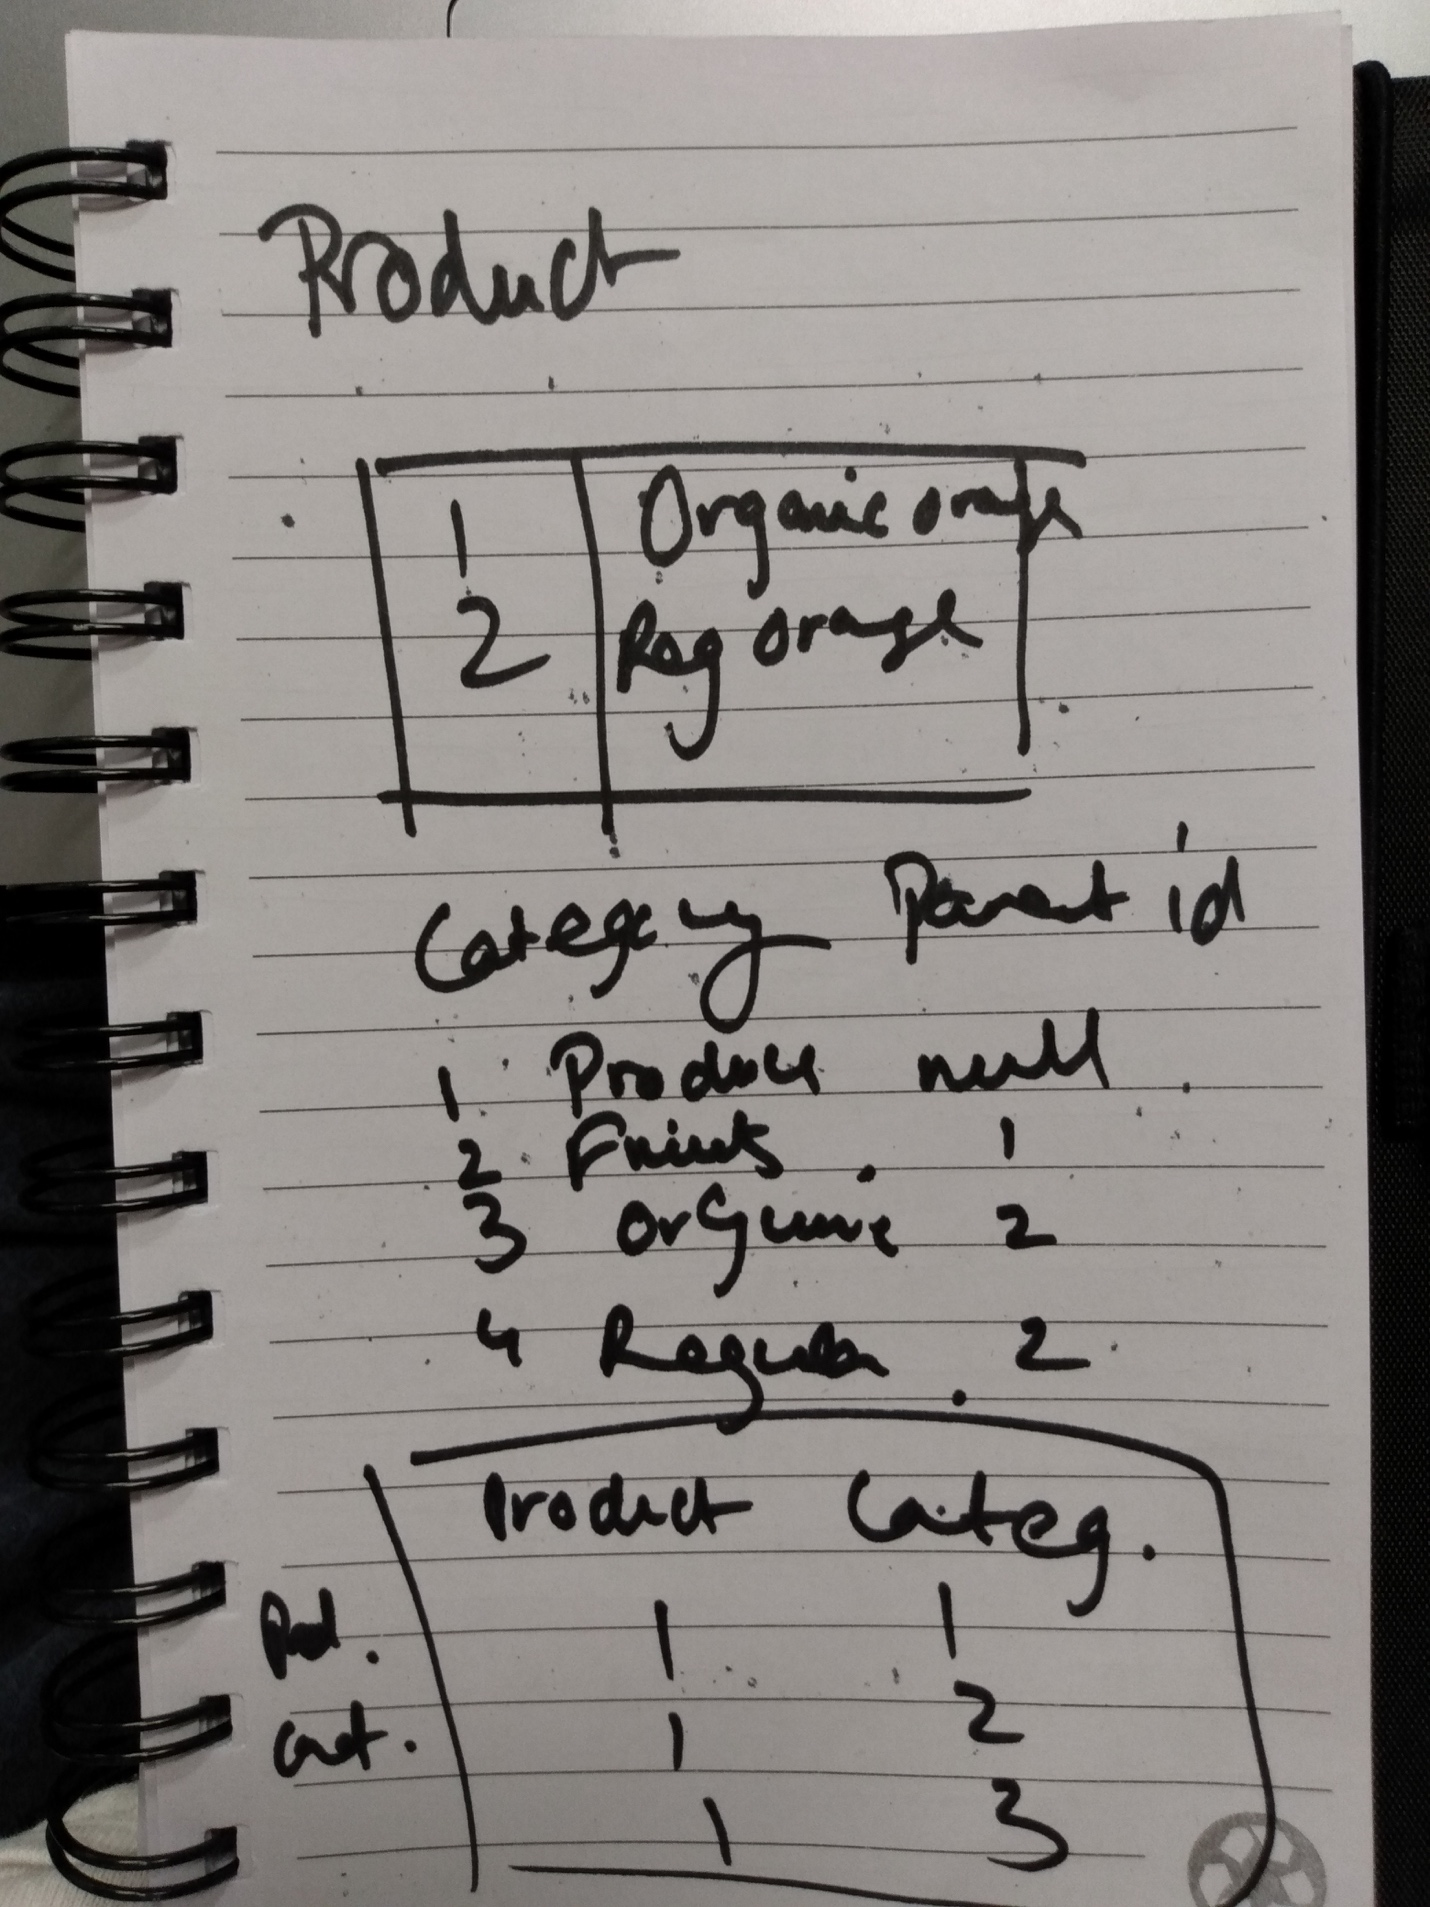 Product
1 Organic orange
2 Reg orange
Category Parent id
1 Produce null
2 Fruits 1
3 Organic 2
4 Regular 2
Product Categ.
Prod. 1 1
Cat. 1 2
1 3